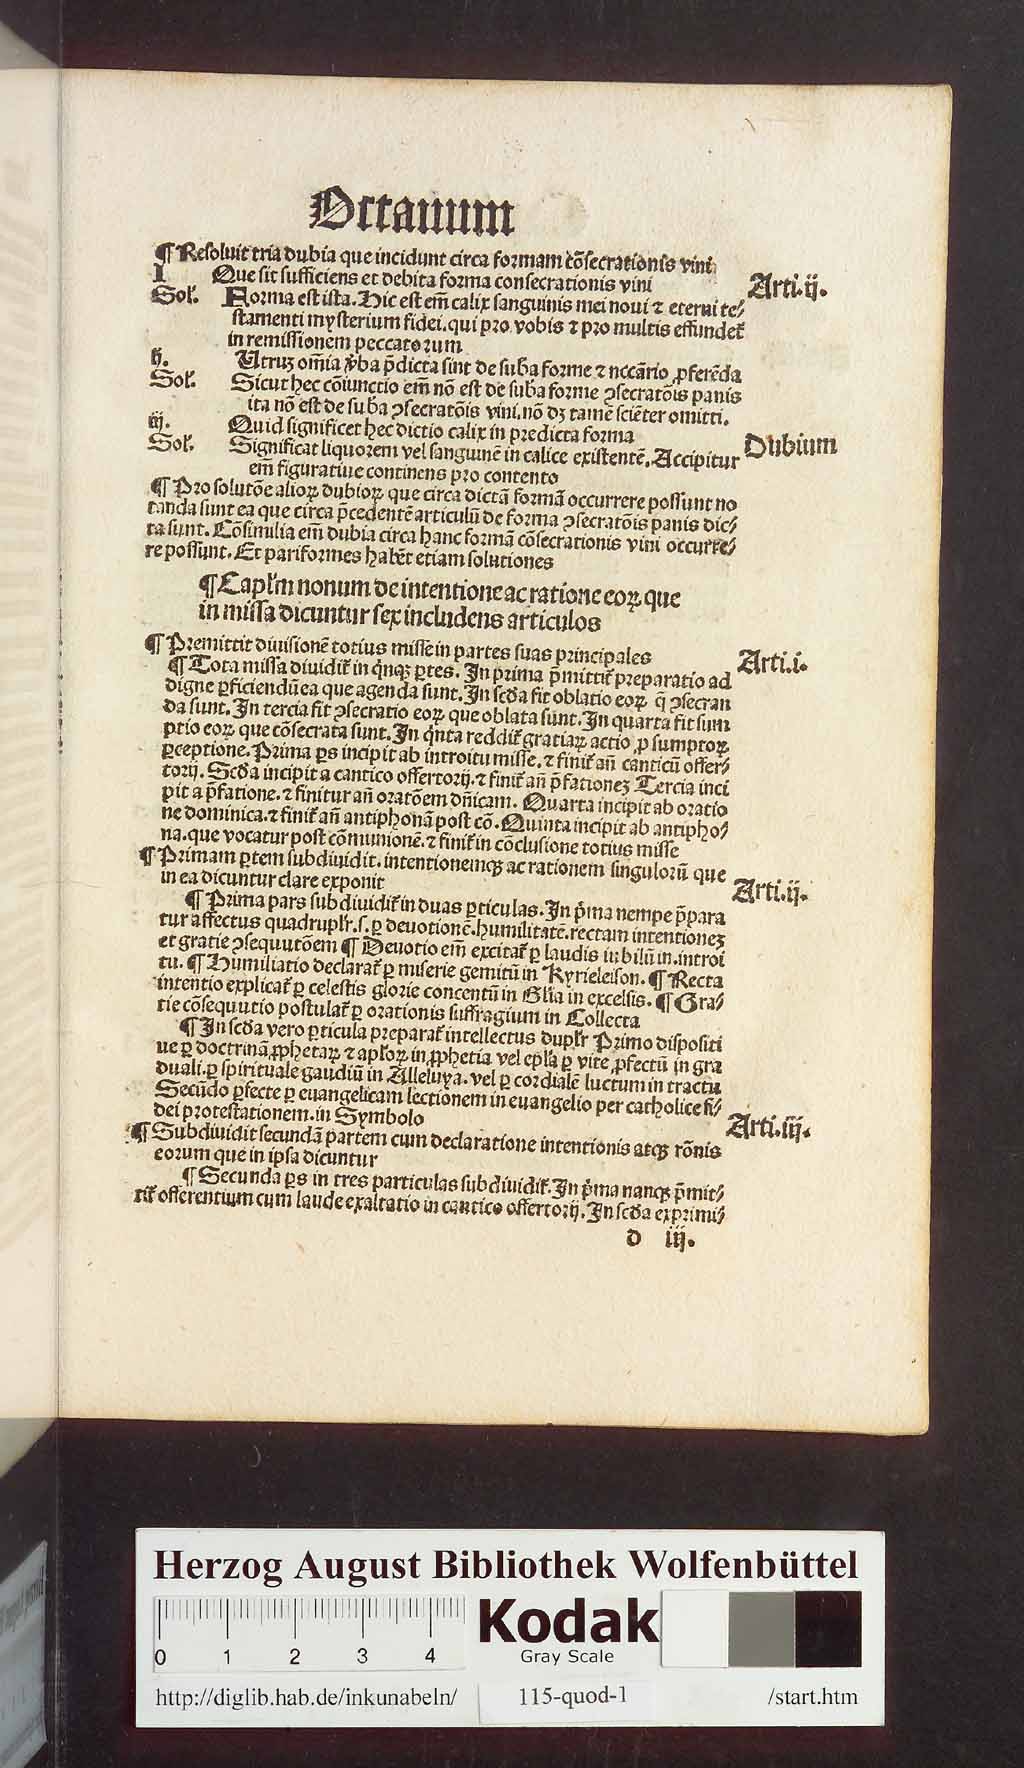 Octauum
¶ Resoluit tria dubia que incidunt circa formam cōsecrationis vini
Arti.ij.
I Que sit sufficiens et debita forma consecrationis vini
Solꝰ. Forma est ista. Hic est em̄ calix sanguinis mei noui ⁊ eterni te⸗
stamenti mysterium fidei. qui pro vobis ⁊ pro multis effundet᷑
in remissionem peccatorum
ij. Utruꝫ om̄ia v̓ba p̄dicta sint de suba forme ⁊ nccārio ꝓferēda
Sol. Sicut hec cōiunctio em̄ nō est de suba forme ꝯsecratōis panis
ita nō est de suba ꝯsecratōis vini. nō dꝫ tamē sciēter omitti.
iij. Quid significet hec dictio calix in predicta forma
Dubium
Sol. Significat liquorem vel sanguinē in calice existentē. Accipitur
em̄ figuratiue continens pro contento
¶ Pro solutōe alioꝝ dubioꝝ que circa dictā formā occurrere possunt no
tanda sunt ea que circa p̄cedentē articulū de forma ꝯsecratōis panis dic⸗
ta sunt. Cōsimilia em̄ dubia circa hanc formā cōsecrationis vini occurre⸗
re possunt. Et pariformes habēt etiam solutiones
¶ Capl̓m nonum de intentione ac ratione eoꝝ que
in missa dicuntur sex includens articulos
¶ Premittit diuisionē totius misse in partes suas principales
Arti.i.
¶ Tota missa diuidit᷑ in q̓nqꝫ ꝑtes. In prima p̄mittit᷑ preparatio ad
digne ꝑficiendū ea que agenda sunt. In scd̓a fit oblatio eoꝝ q̄ ꝯsecran
da sunt. In tercia fit ꝯsecratio eoꝝ que oblata sunt. In quarta fit sum
ptio eoꝝ que cōsecrata sunt. In q̓nta reddit᷑ gratiaꝝ actio ꝓ sumptoꝝ
ꝑceptione. Prima ꝑs incipit ab introitu misse. ⁊ finit᷑ an̄ canticū offer⸗
torij. Scd̓a incipit a cantico offertorij. ⁊ finit᷑ an̄ p̄fationeꝫ Tercia inci
pit a p̄fatione. ⁊ finitur an̄ oratōem dn̄icam. Quarta incipit ab oratio
ne dominica. ⁊ finit᷑ an̄ antiphonā post cō. Quinta incipit ab antipho⸗
na. que vocatur post cōmunionē. ⁊ finit᷑ in cōclusione totius misse
¶ Primam ꝑtem subdiuidit. intentionemqꝫ ac rationem singulorū que
in ea dicuntur clare exponit
Arti.ij.
¶ Prima pars subdiuidit᷑ in duas ꝑticulas. In p̓ma nempe p̄para
tur affectus quadruplr̓. s. ꝑ deuotionē. humilitatē. rectam intentioneꝫ
et gratie ꝯsequutōem ¶ Deuotio em̄ excitat᷑ ꝑ laudis iubilū in. introi
tu. ¶ Humiliatio declarat᷑ ꝑ miserie gemitū in Kyrieleison. ¶ Recta
intentio explicat᷑ ꝑ celestis glorie concentū in Gl̓ia in excelsis. ¶ Gra⸗
tie cōsequutio postulat᷑ ꝑ orationis suffragium in Collecta
¶ In scd̓a vero ꝑticula preparat᷑ intellectus duplr̓ Primo dispositi
ue ꝑ doctrinā ꝓphetaꝝ ⁊ apl̓oꝝ in ꝓphetia vel epl̓a ꝑ vite ꝓfectū in gra
duali. ꝑ spirituale gaudiū in Alleluya. vel ꝑ cordialē luctum in tractu
Secūdo ꝑfecte ꝑ euangelicam lectionem in euangelio per catholice fi⸗
dei protestationem. in Symbolo
Arti.iij.
¶ Subdiuidit secundā partem cum declaratione intentionis atqꝫ rōnis
eorum que in ipsa dicuntur
¶ Secunda ꝑs in tres particulas subdiuidit᷑. In p̓ma nanqꝫ p̄mit⸗
tit᷑ offerentium cum laude exaltatio in cantico offertorij. In scd̓a exprimi⸗
d iij.
Herzog August Bibliothek Wolfenbüttel
0 1 2 3 4
Kodak
Gray Scale
http://diglib.hab.de/inkunabeln/ 115-quod-1 /start.htm